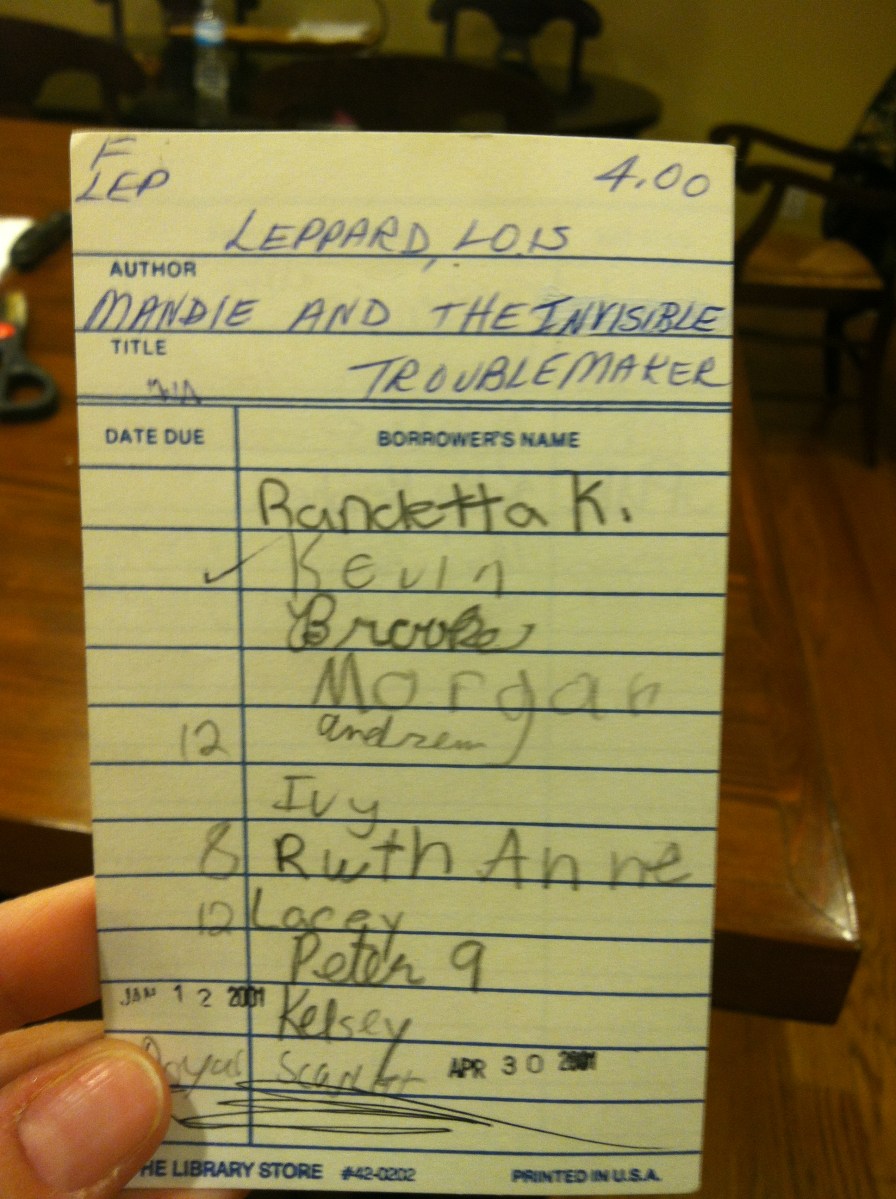 F 4.00
LEP
LEPPARD, LOIS
AUTHOR
MANDIE AND THE INVISIBLE
TITLE
TROUBLEMAKER
DATE DUE BORROWER'S NAME
Randetta K.
✓ Kevin
Brooke
Morgan
12 andrew
Ivy
8 Ruth Anne
12 Lacey
Peter 9
JAN 12 2001 Kelsey
Scarlett APR 30 2001
HE LIBRARY STORE #42-0202 PRINTED IN U.S.A.